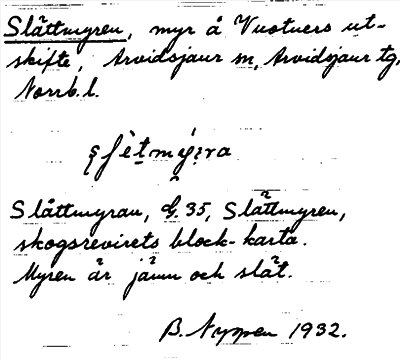 Slåttmyren, myr å Vuotners ut-
skifte, Arvidsjaur sn, Arvidsjaur tg,
Norrb. l.
Slåttmyran, G. 35, Slåttmyren,
skogsrevirets block-karta.
Myren är jämn och slät.
B. Nyppen 1932.